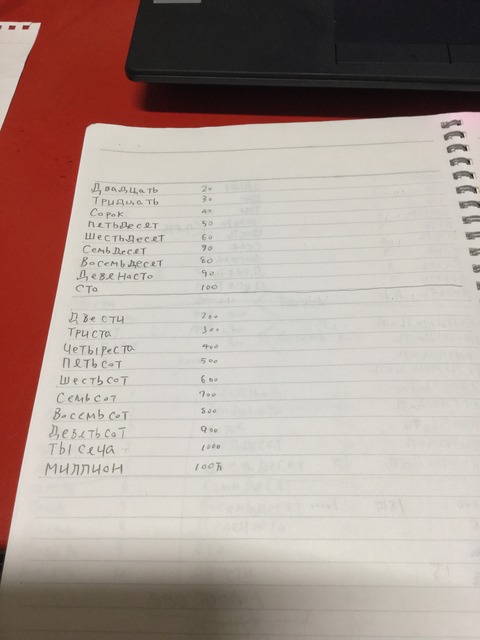 Двадцать 20
Тридцать 30
Сорок 40
Петьдесет 50
Шестьдесет 60
Семьдесет 70
Восемьдесет 80
Девеносто 90
Сто 100
Двести 200
Триста 300
Четыреста 400
Петьсот 500
Шестьсот 600
Семьсот 700
Восемьсот 800
Деветьсот 900
Тысеча 1000
Миллион 100万